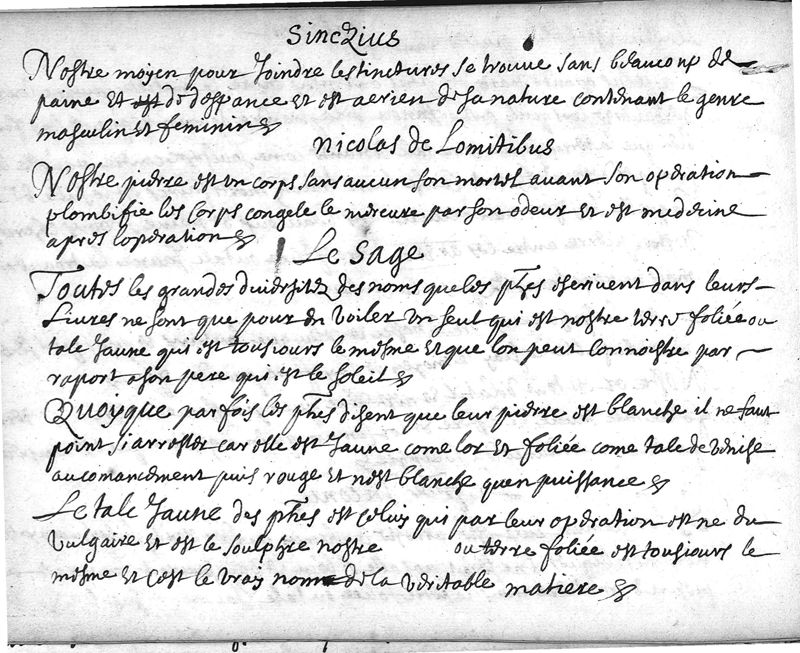 Sinezius
Nostre moyen pour Joindre les tinctures se trouve sans beaucoup de
paine et de despance et est aerien de sa nature contenant le genre
masculin et feminin
Nicolas de Lomitibus
Nostre pierre est un corps sans aucun son mortel avant son operation
plombifie les corps congele le mercure par son odeur et est medecine
apres loperation
Le Sage
Toutes les grandes diversitez des noms que les phes escrivent dans leurs
Livres ne sont que pour en voiler un seul qui est nostre terre foliée ou
talc Jaune qui est tousiours le mesme et que lon peut connoistre par
raport a son pere qui est le soleil
Quoyque par fois les phes disent que leur pierre est blanche il ne faut
point si arrester car elle est Jaune come lor et foliée come talc de venise
au comancement puis rouge et nest blanche quen puissance
Le talc Jaune des phes est celuy qui par leur operation est ne du
vulgaire et est le soulphre nostre ou terre foliée est tousiours le
mesme et cest le vray nom de la veritable matiere